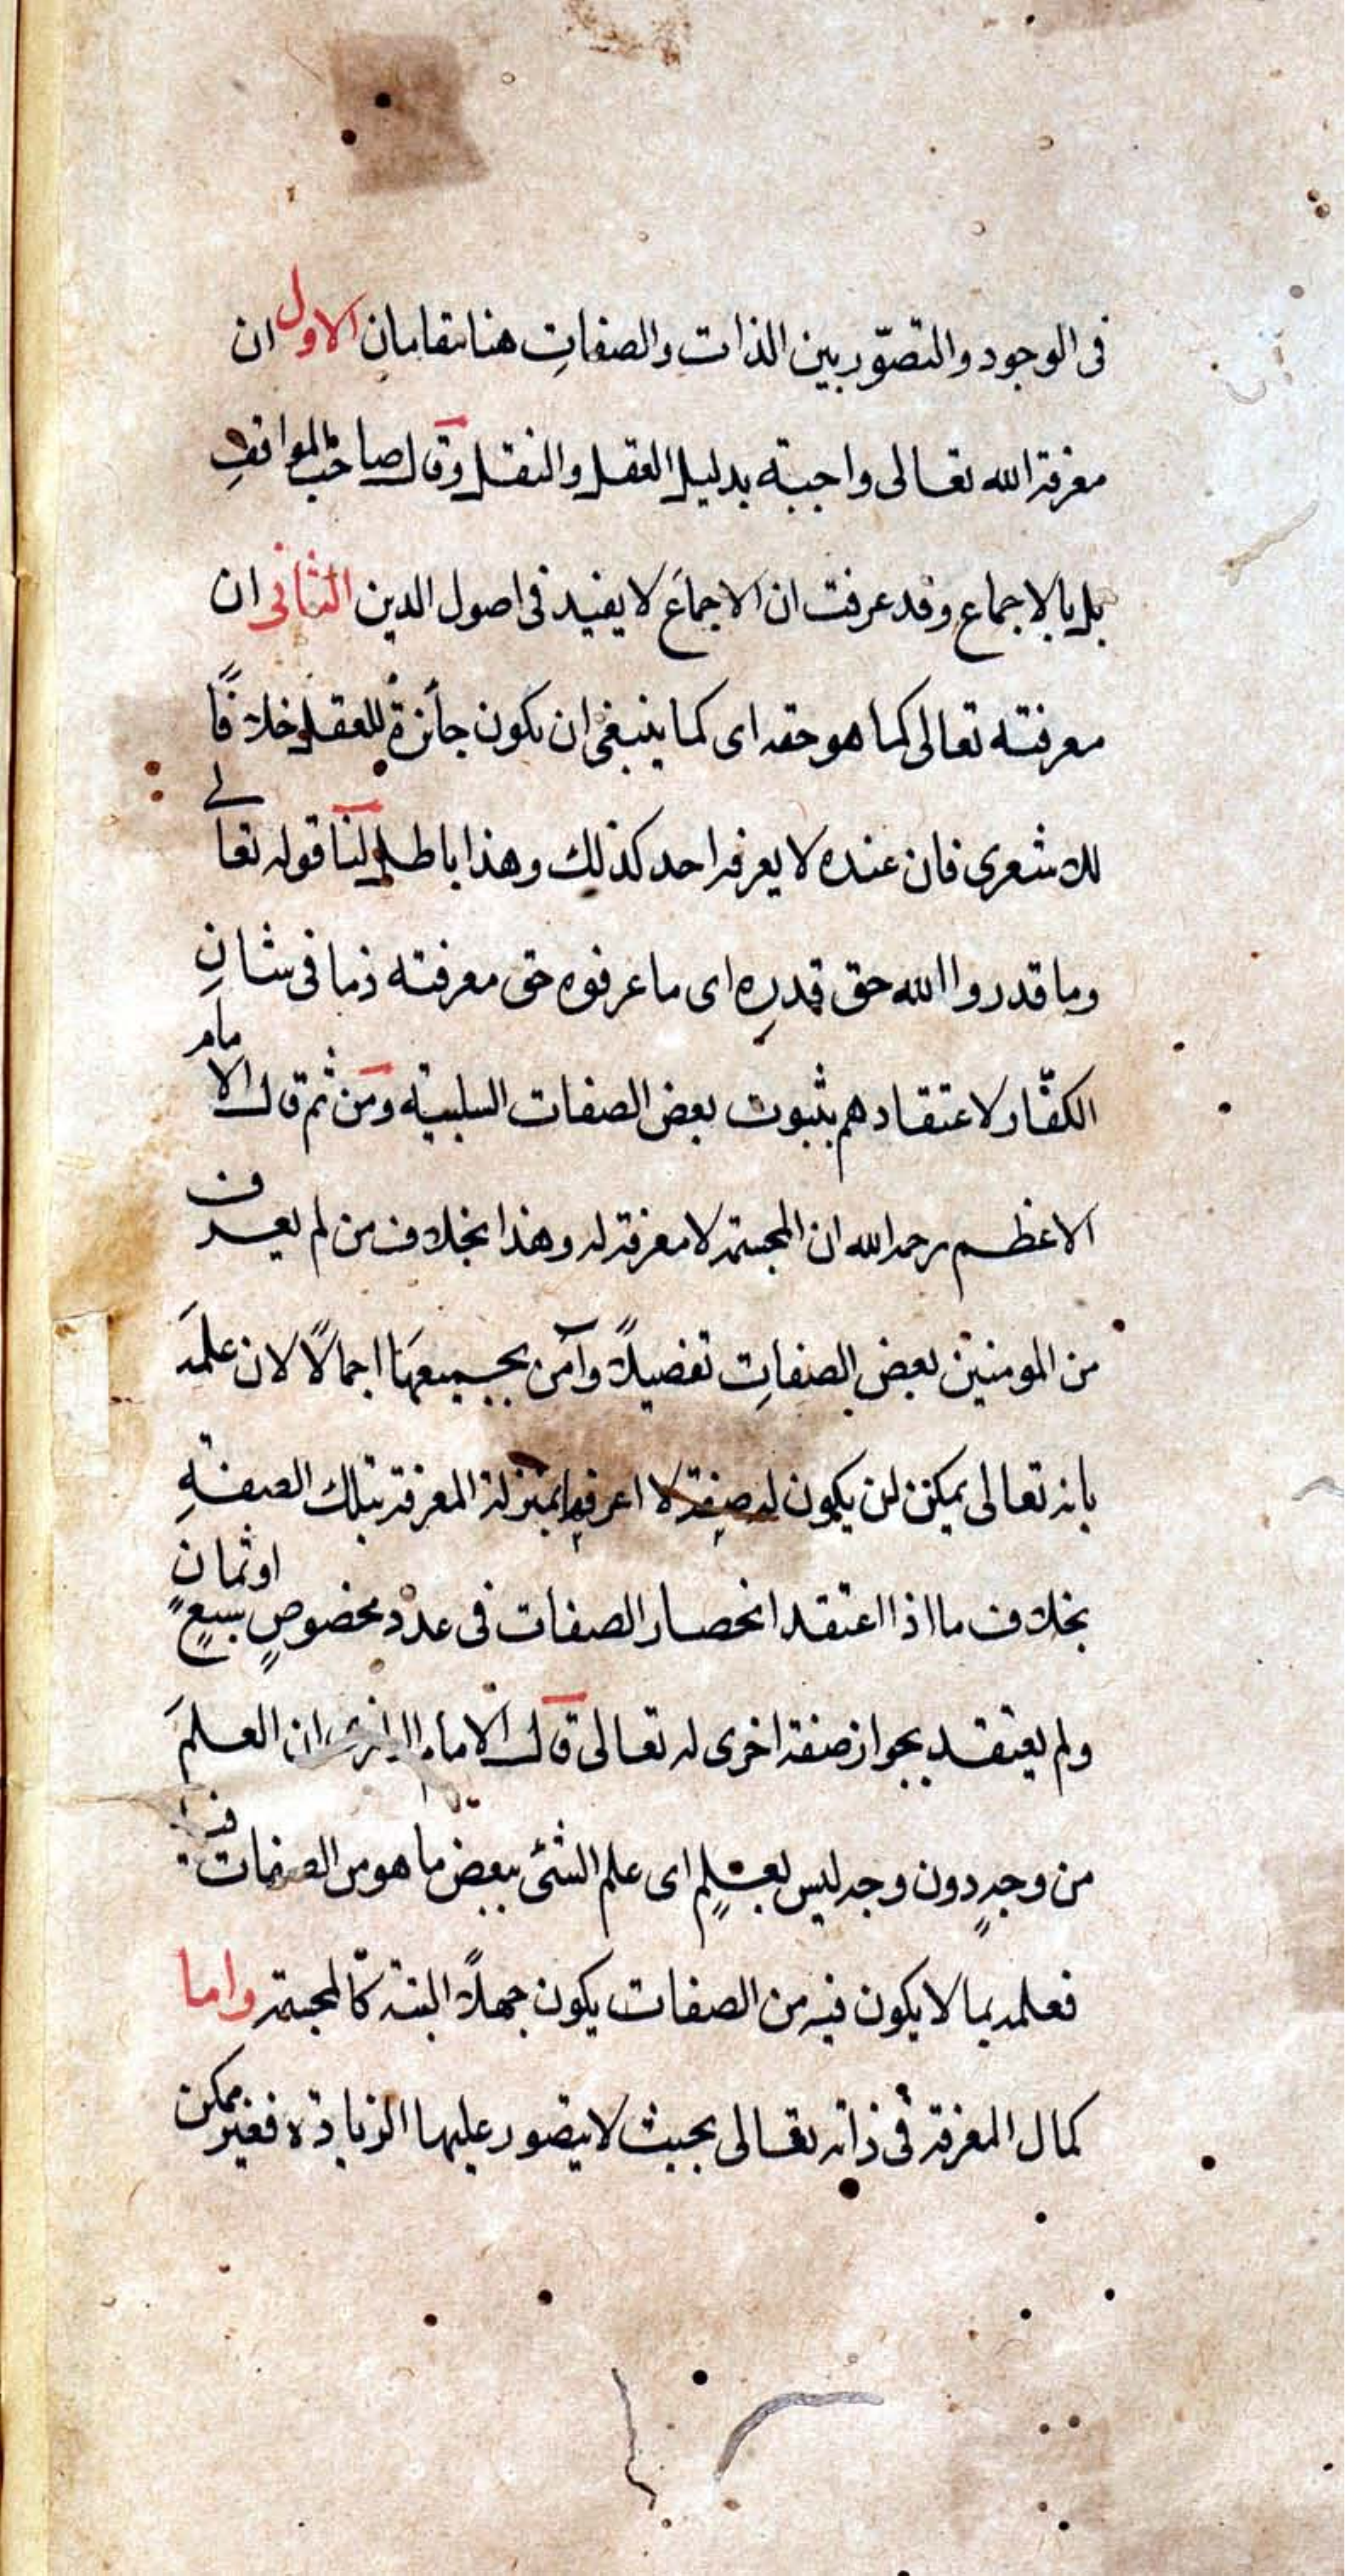 فى الوجود والتصوّر بين الذات والصفاتِ هنا مقامان الاول ان
معرفة الله تعالى واجبة بدليل العقل والنقل وقال صاحب المواقفِ
بل بالاجماع وقد عرفت ان الاجماعَ لا يفيد فى اصول الدين الثانى ان
معرفته تعالى كما هو حقه اى كما ينبغى ان تكون جائزةٌ للعقل خلافًا
للاشعرى فان عنده لا يعرفه احد كذلك وهذا باطل لنا قوله تعالى
وما قدروا الله حق قدرِه اى ما عرفوه حق معرفته ذما فى شانِ
الكفّار لاعتقادهم بثبوت بعض الصفات السلبيّة ومن ثم قال الامام
الاعظم رحمه الله ان المجسّمة لا معرفة له وهذا بخلاف من لم يعرف
من المومنين بعض الصفاتِ تفصيلاً وآمن بجميعهَا اجمالًا لان علمَه
بانه تعالى يمكن ان يكون له صفة لا اعرفها بمنزلة المعرفة بتلك الصفةِ
بخلاف ما اذا اعتقد انحصار الصفات فى عدد مخصوصٍ سبعٍ او ثمانٍ
ولم يعتقد بجواز صفة اخرى له تعالى قال الامام الرازى ان العلمَ
من وجهٍ دون وجه ليس بعلمٍ اى علم الشئ ببعض ما هو من الصفات فيه
فعلمه بما لا يكون فيه من الصفات يكون جهلاً البتة كالمجسّمة واما
كمال المعرفة فى ذاته تعالى بحيث لا يتصور عليها الزيادة فغير ممكن